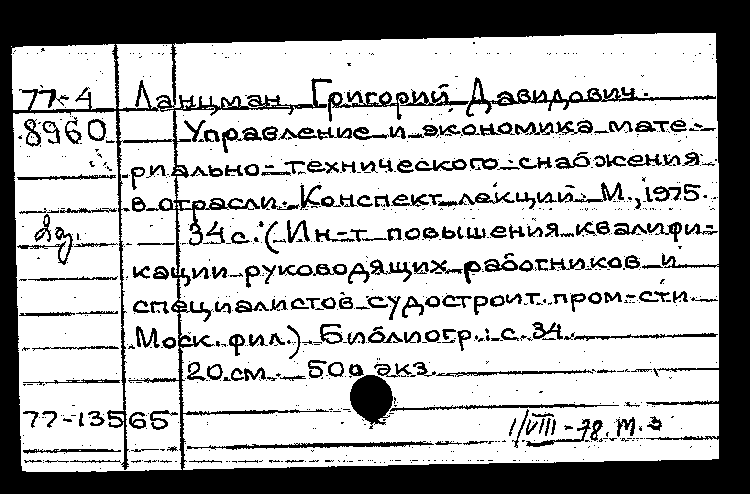 77-4 Ланцман, Григорий Давидович.
8960 Управление и экономика мате-
риально-технического снабжения
в отрасли. Конспект лекций. М., 1975.
34 с. (Ин-т повышения квалифи-
кации руководящих работников и
специалистов судостроит. пром-сти.
Моск. фил.) Библиогр.: с. 34.
20 см. 500 экз.
77-13565
1/VIII-78. М.